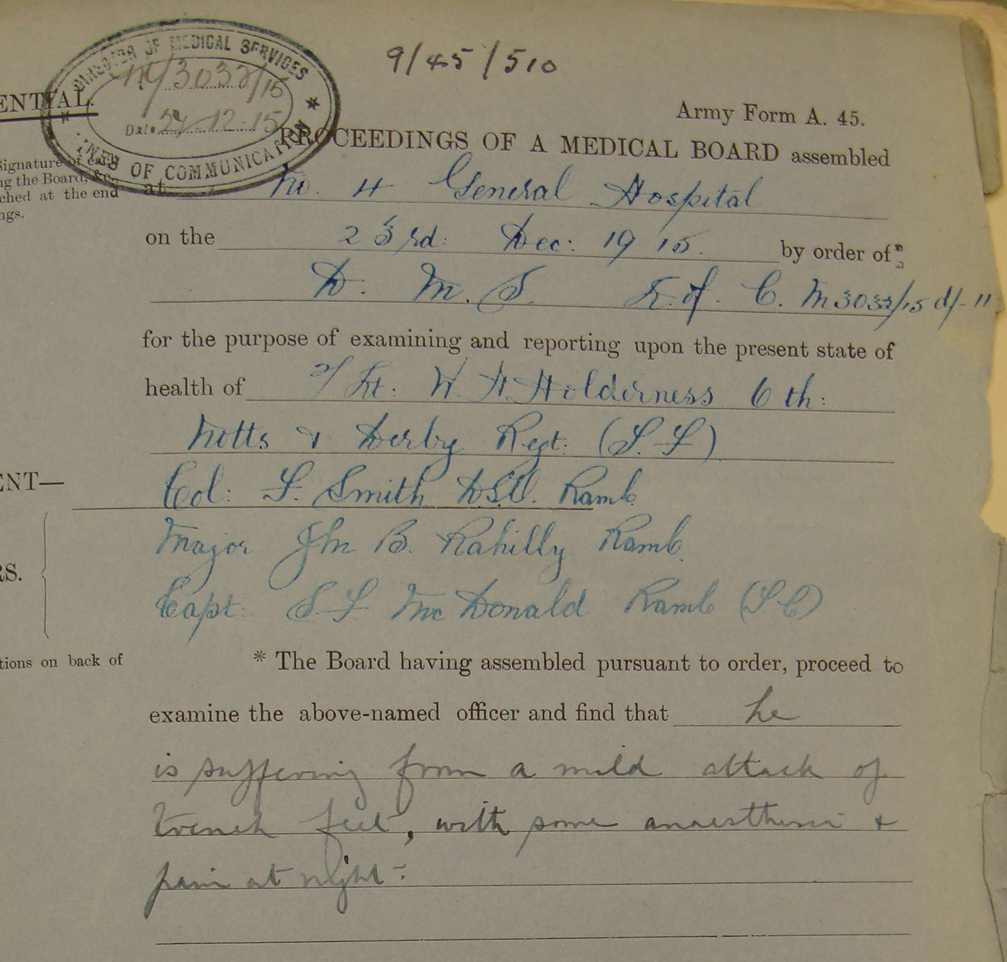 9/45/510
DIRECTOR OF MEDICAL SERVICES
M/3033/15
Date 24-12-15
LINES OF COMMUNICATION
ENTIAL.
Army Form A. 45.
PROCEEDINGS OF A MEDICAL BOARD assembled
Signature of
ng the Board,
ched at the end
ngs.
at No. 4 General Hospital
on the 23rd: Dec: 1915. by order of
D. M. S. L. of. C. M3033/15 d/- 11
for the purpose of examining and reporting upon the present state of
health of 2/Lt: W. F. Holderness 6th:
Notts & Derby Regt: (S. F)
ENT—
Col: F. Smith D.S.O. Ramc
Major Jn B. Rahilly Ramc
RS.
Capt: S. F. McDonald Ramc (S C)
tions on back of
* The Board having assembled pursuant to order, proceed to
examine the above-named officer and find that he
is suffering from a mild attack of
trench feet, with some anaesthesia &
pain at night-